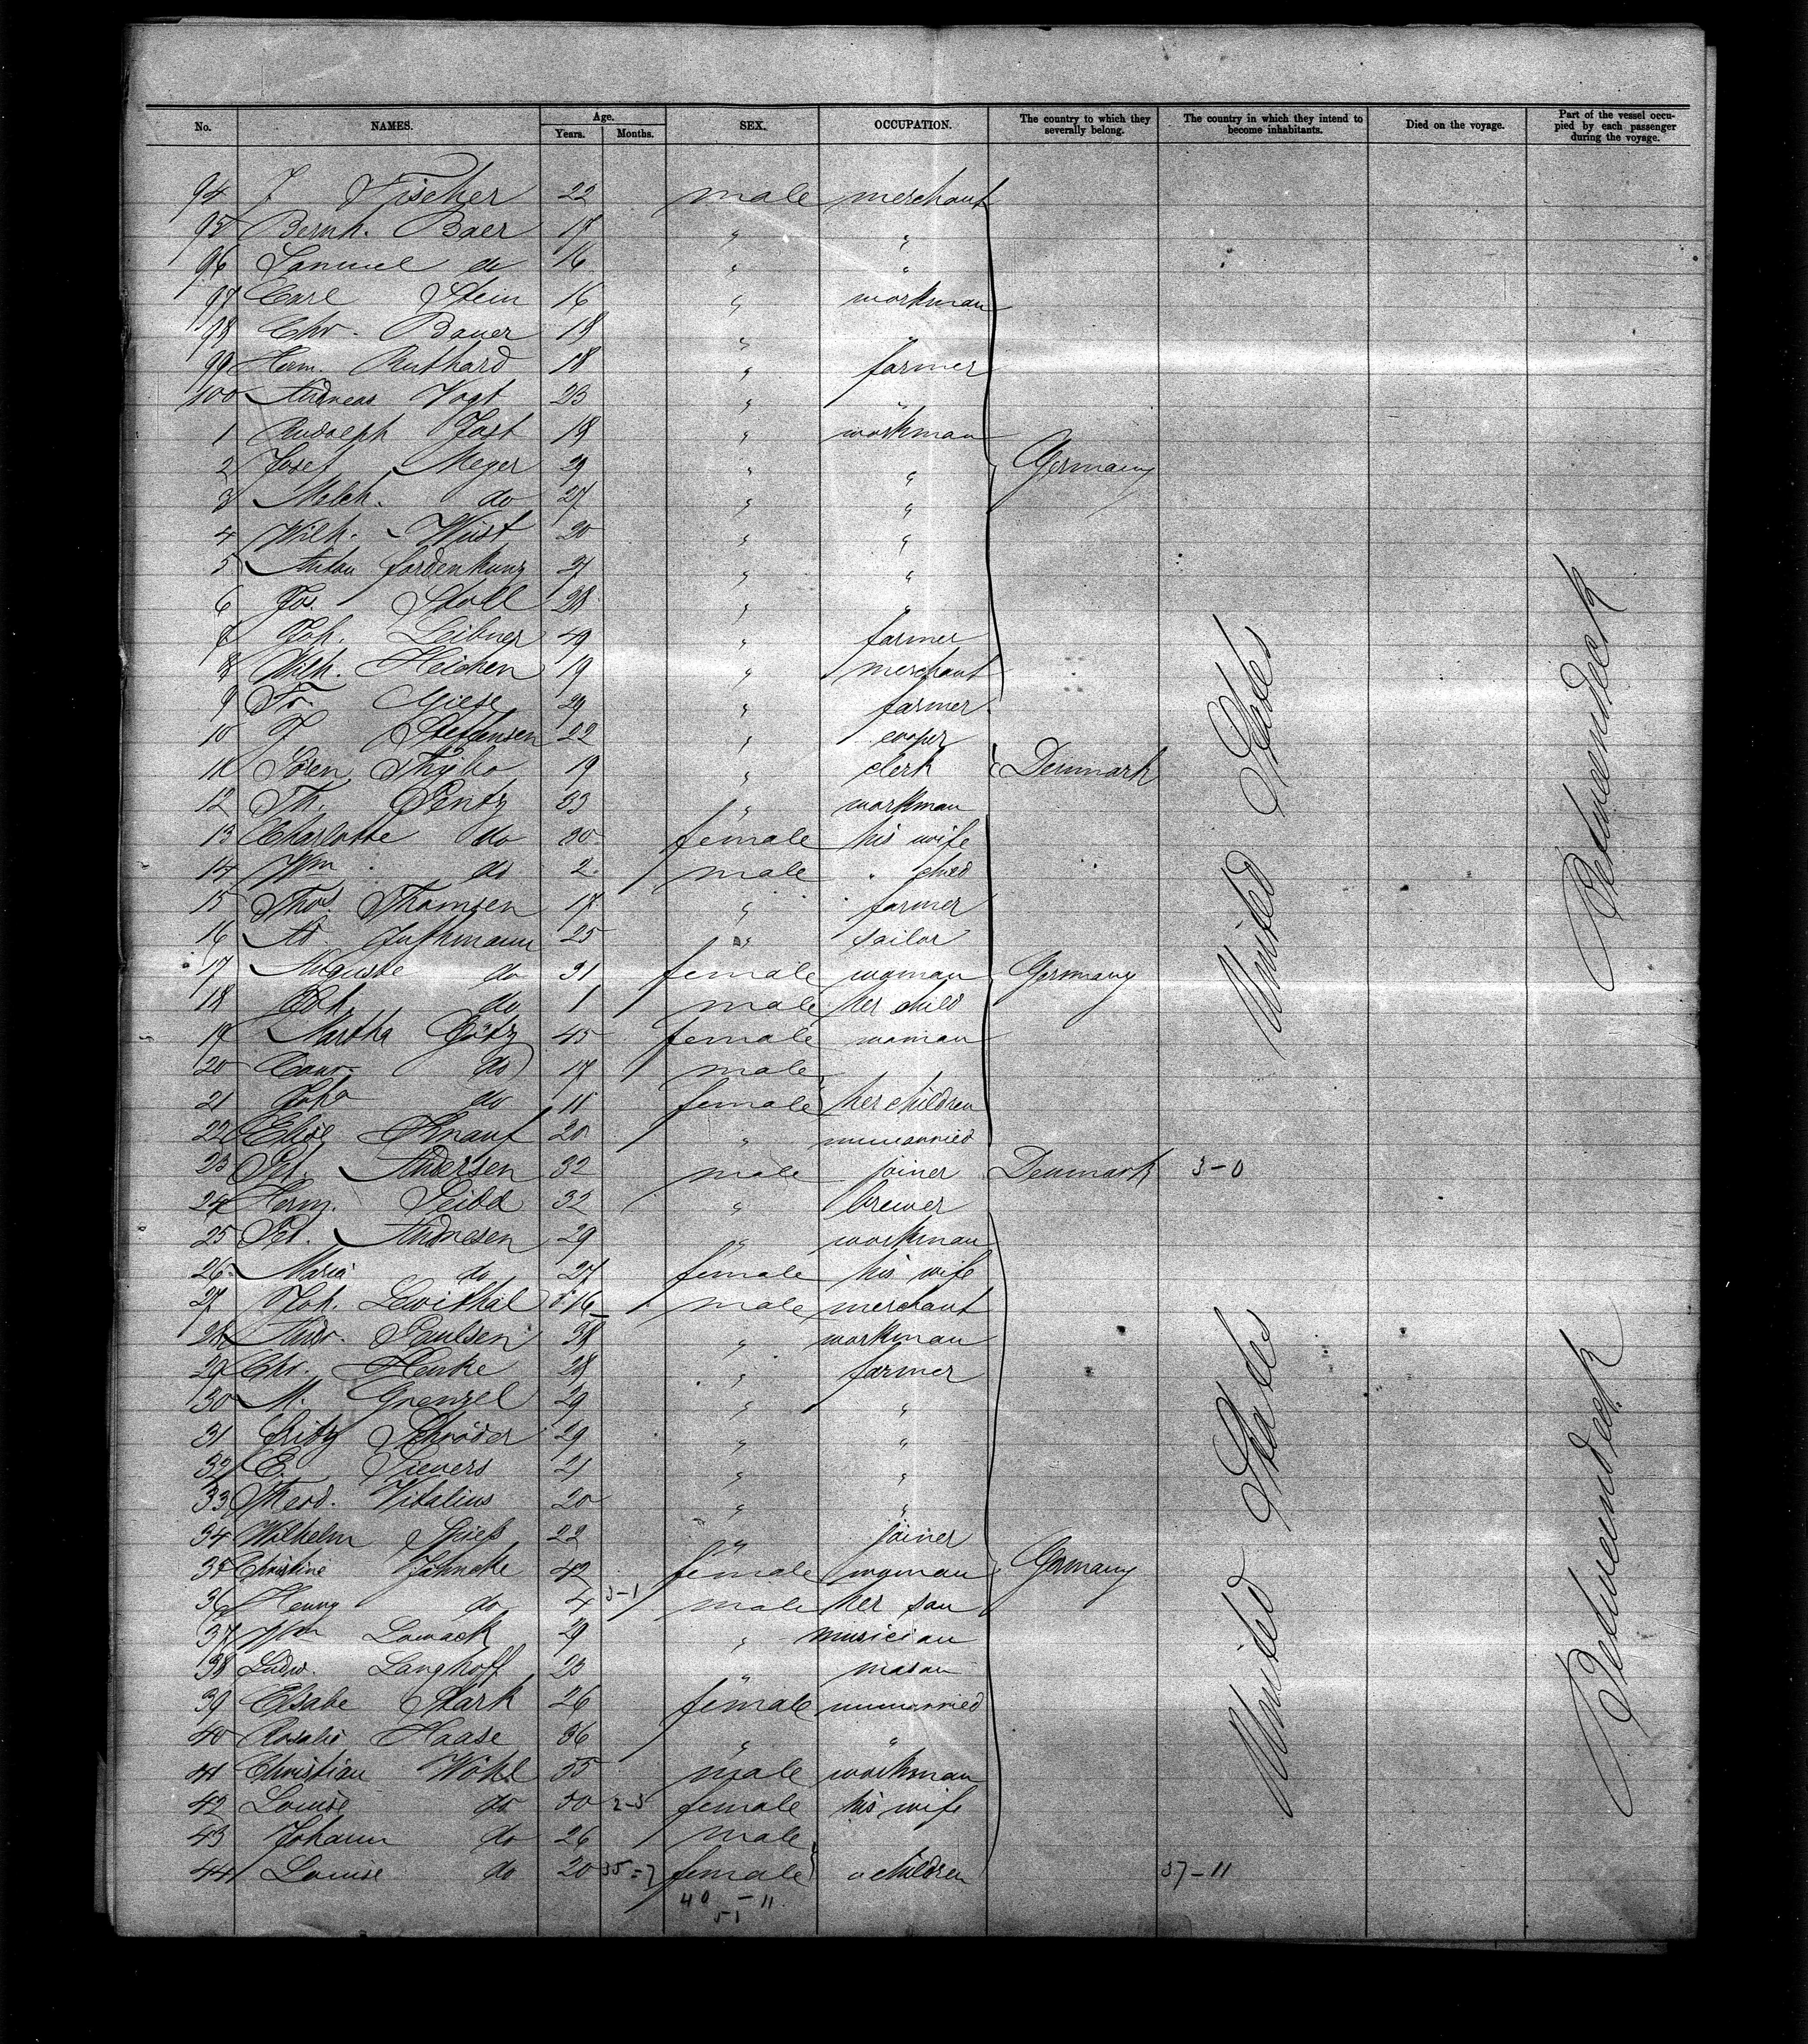 No. NAMES. Age. Years. Months. SEX. OCCUPATION. The country to which they severally belong. The country in which they intend to become inhabitants. Died on the voyage. Part of the vessel occupied by each passenger during the voyage.
94 J Fischer 22 male merchant
95 Bernh. Baer 19 " "
96 Samuel do 16 " "
97 Carl Stein 16 " workman
98 Chr. Bauer 18 " "
99 Herm. Ruthard 18 " farmer
100 Andreas Vogt 23 " "
1 Rudolph Jost 18 " workman
2 Josef Meyer 29 " " Germany
3 Melch. do 27 " "
4 Wilh. Wüst 20 " "
5 Anton " "
6 Jos. Stoll 28 " "
7 Joh. Leibner 49 " farmer
8 Wilh. Heichen 19 " merchant
9 Fr. Giese 29 " farmer
10 J Steffensen 22 " cooper
11 Sören Thybo 19 " clerk Denmark
12 Th. Pentz 33 " workman
13 Charlotte do 30 female his wife
14 Wm do 2 male " child
15 Thos. Thomsen 17 " farmer
16 Ad. 25 " sailor
17 Auguste do 31 female woman Germany
18 Rob. do 1 male her child
19 Martha Götz 45 female woman
20 Conr. do 17 male
21 Joha do 11 female her children
22 Elise Knauf 20 " unmarried
23 Pet. Andersen 32 male joiner Denmark 3-0
24 Herm. Seidel 32 " brewer
25 Pet. Andresen 29 " workman
26 Maria do 27 female his wife
27 Joh. Lewithal 16 male merchant
28 Andr. Paulsen 38 " workman
29 Chr. Henke 28 " farmer
30 M. Grenzel 29 " "
31 Fritz Schröder 29 " "
32 E. Sievers 21 " "
33 Theod. Vitalius 20 " "
34 Wilhelm Spieß 22 " joiner
35 Christine Jähncke 42 female woman Germany
36 Henny do 4 3-1 male her son
37 Wm Lowack 29 " musician
38 Ludw. Langhoff 23 " mason
39 Elsabe Stark 26 female unmarried
40 Rosalie Haase 36 " "
41 Christian Wöhl 55 male workman
42 Louise do 50 2-5 female his wife
43 Johann do 26 male
44 Louise do 20 35=7 female " children 37-11
40 - 11
51
United States
Betweendeck
United States
Betweendeck